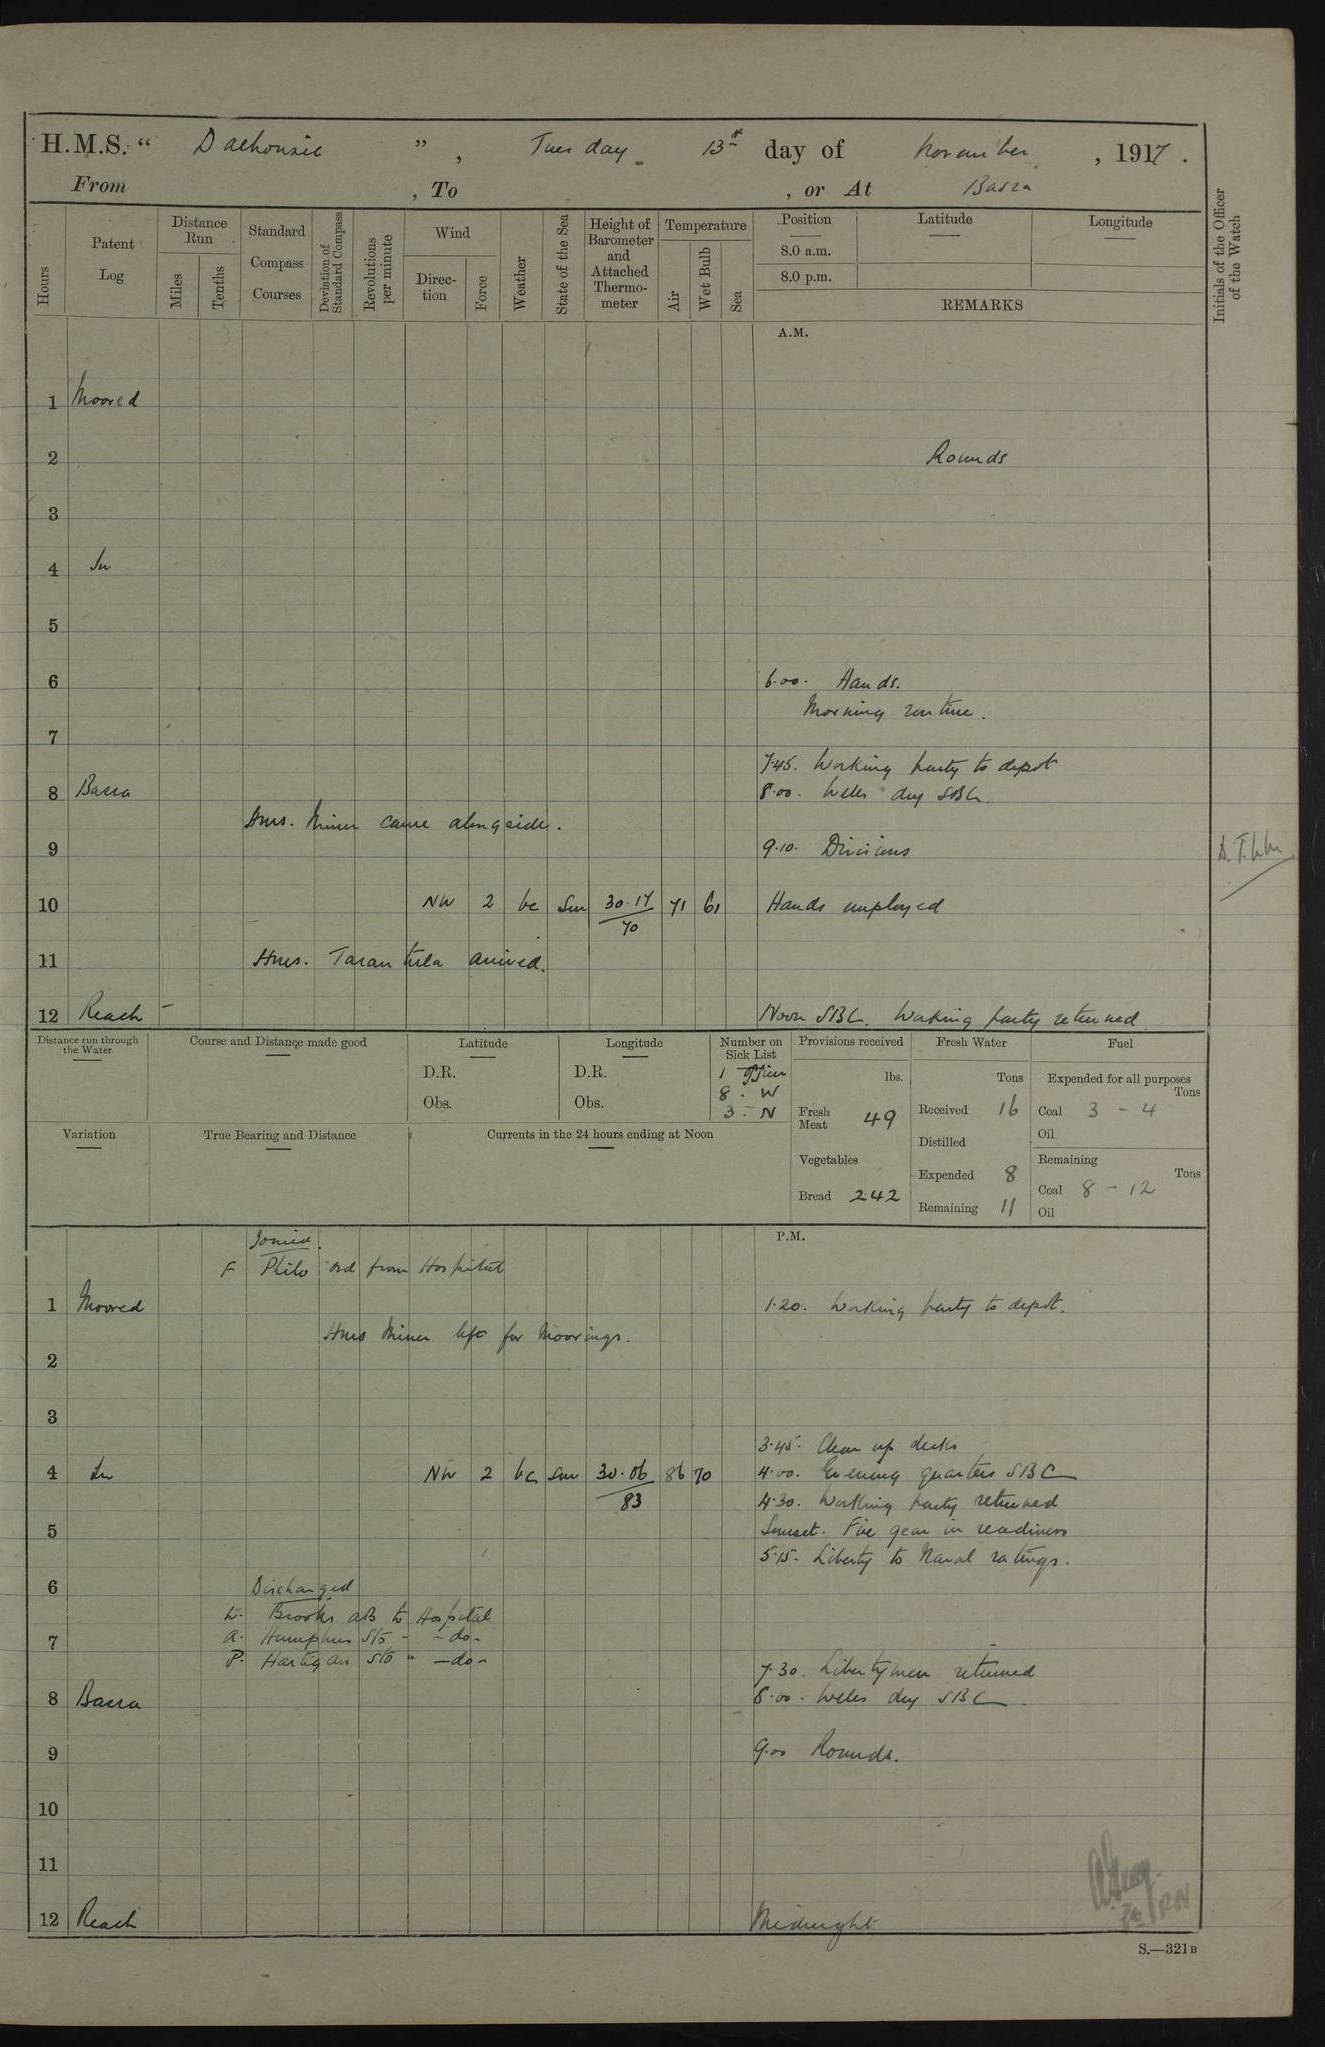 H.M.S. “ Dalhousie ”, Tuesday 13th day of November, 1917.
From , To , or At Basra
Hours
Patent Log
Distance Run
Miles
Tenths
Standard Compass Courses
Deviation of Standard Compass
Revolutions per minute
Wind
Direction
Force
Weather
State of the Sea
Height of Barometer and Attached Thermometer
Temperature
Air
Wet Bulb
Sea
Position Latitude Longitude
8.0 a.m.
8.0 p.m.
REMARKS
Initials of the Officer of the Watch
A.M.
1 Moored
2 Rounds
3
4 In
5
6 6.00. Hands.
Morning routine.
7
7.45. Working party to depot
8 Basra 8.00. Wells dry SBC.
Hms. Miner came alongside.
9 9.10. Divisions
10 NW 2 bc Sm 30.17 71 61 Hands employed
70
11 Hms. Tarantula arrived.
12 Reach Noon SBC. Working party returned
Distance run through the Water
Course and Distance made good
Latitude
D.R.
Obs.
Longitude
D.R.
Obs.
Number on Sick List
1 Officer
8 . W
3 . N
Provisions received
lbs.
Fresh Meat 49
Vegetables
Bread 242
Fresh Water
Tons
Received 16
Distilled
Expended 8
Remaining 11
Fuel
Expended for all purposes
Tons
Coal 3 - 4
Oil
Remaining
Tons
Coal 8 - 12
Oil
Variation
True Bearing and Distance
Currents in the 24 hours ending at Noon
P.M.
Joined.
F Philo ord from Hospital
1 Moored 1.20. Working party to depot.
Hms Miner left for Moorings.
2
3
3.45. Clear up decks
4 In NW 2 bc sm 30.06 86 70 4.00. Evening quarters SBC
83
4.30. Working party returned
5 Sunset. Fire gear in readiness
5.15. Liberty to Naval ratings.
6 Discharged
Brooks AB to Hospital
7 A. Humphries Sto - -do-
P. Hartigan Sto " -do-
7.30. Libertymen returned
8 Basra 8.00. Wells dry SBC
9 9.00 Rounds.
10
11
12 Reach Midnight
RN
S.—321B